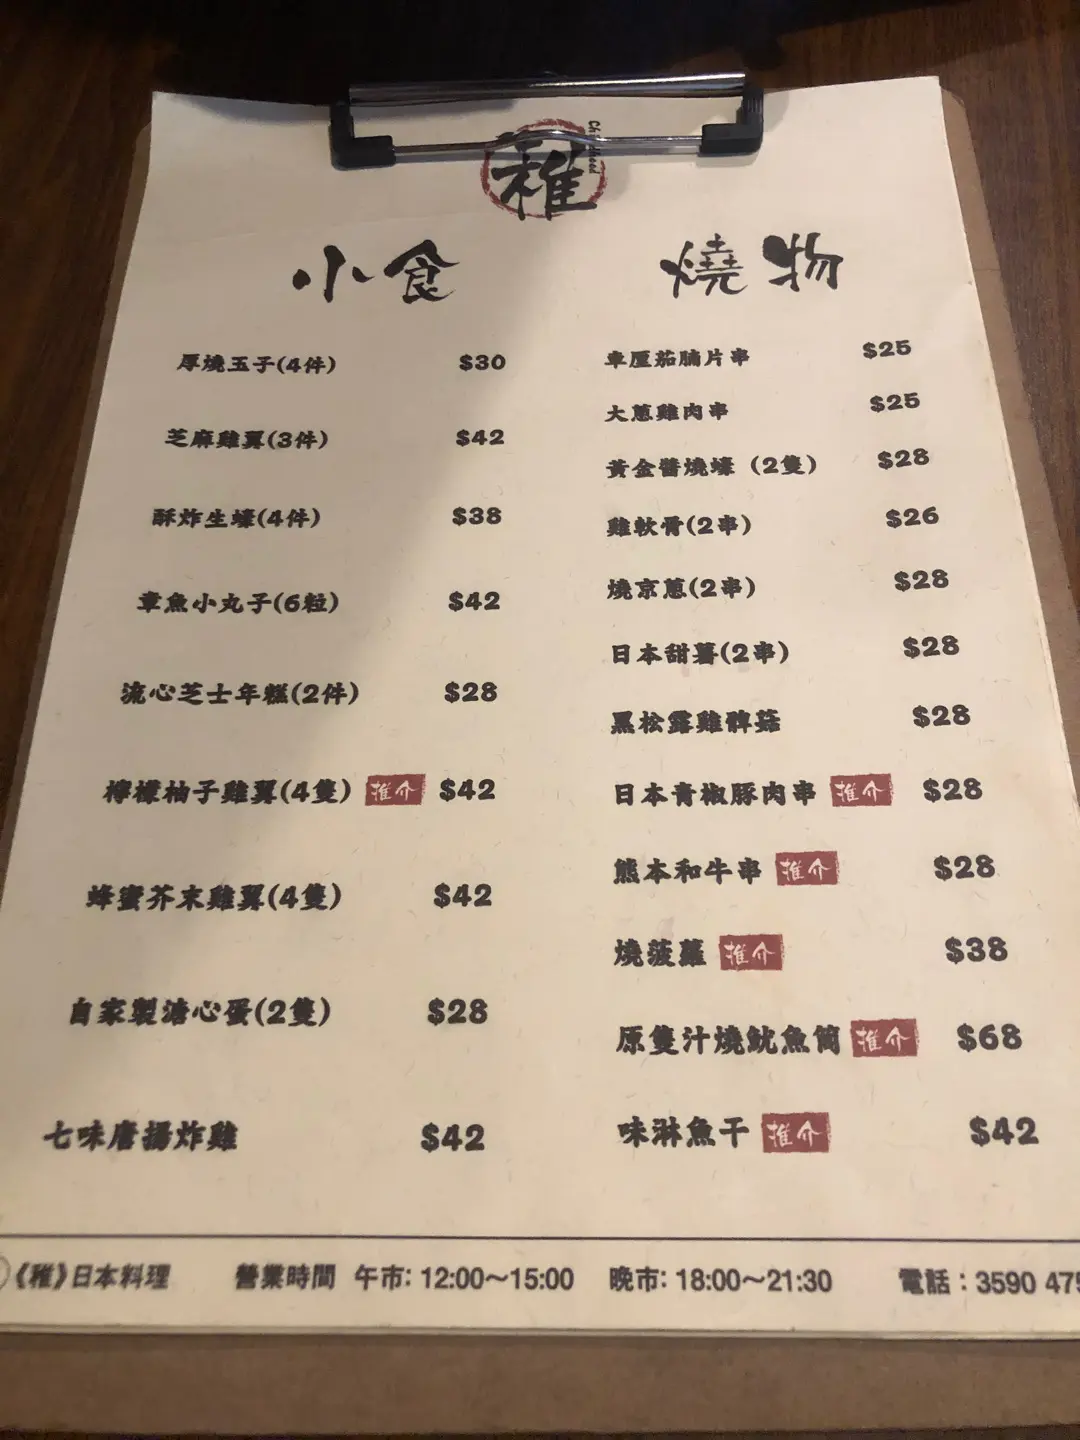 稚
小食
厚燒玉子(4件) $30
芝麻雞翼(3件) $42
酥炸生蠔(4件) $38
章魚小丸子(6粒) $42
流心芝士年糕(2件) $28
檸檬柚子雞翼(4隻) 推介 $42
蜂蜜芥末雞翼(4隻) $42
自家製溏心蛋(2隻) $28
七味唐揚炸雞 $42
燒物
車厘茄腩片串 $25
大蔥雞肉串 $25
黃金醬燒蠔（2隻） $28
雞軟骨(2串) $26
燒京蔥(2串) $28
日本甜薯(2串) $28
黑松露雞髀菇 $28
日本青椒豚肉串 推介 $28
熊本和牛串 推介 $28
燒菠蘿 推介 $38
原隻汁燒魷魚筒 推介 $68
味淋魚干 推介 $42
《稚》日本料理 營業時間 午市: 12:00～15:00 晚市: 18:00～21:30 電話：3590 475